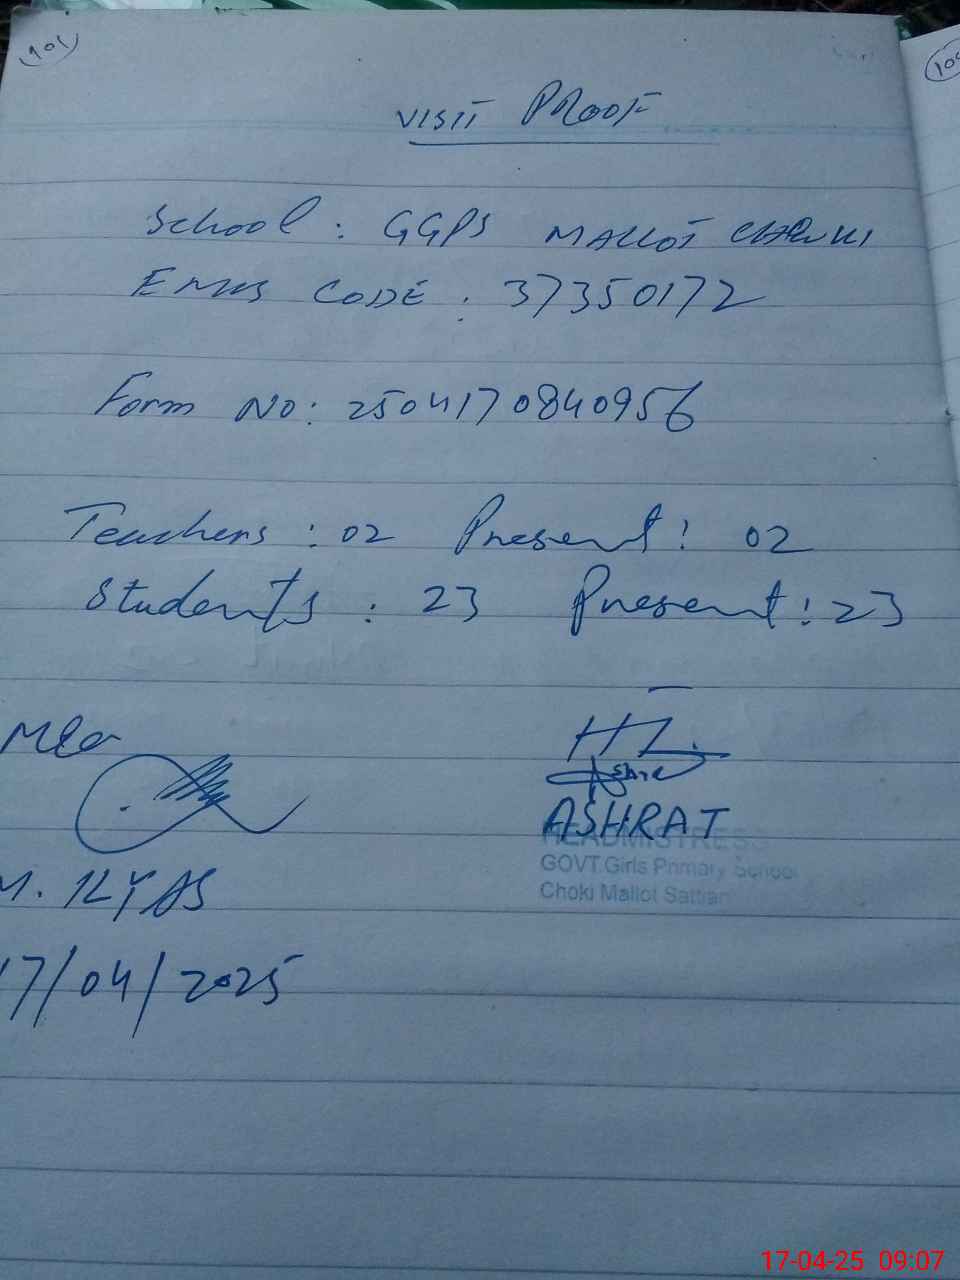 (101)
VISIT PROOF
School : GGPS MALLOT
EMIS CODE : 37350172
Form NO: 2504170840956
Teachers : 02 Present : 02
Students : 23 Present : 23
HT.
ASHRAT
HEADMISTRESS
GOVT.Girls Primary School
Choki Mallot Sattian
M. ILYAS
17/04/2025
17-04-25 09:07